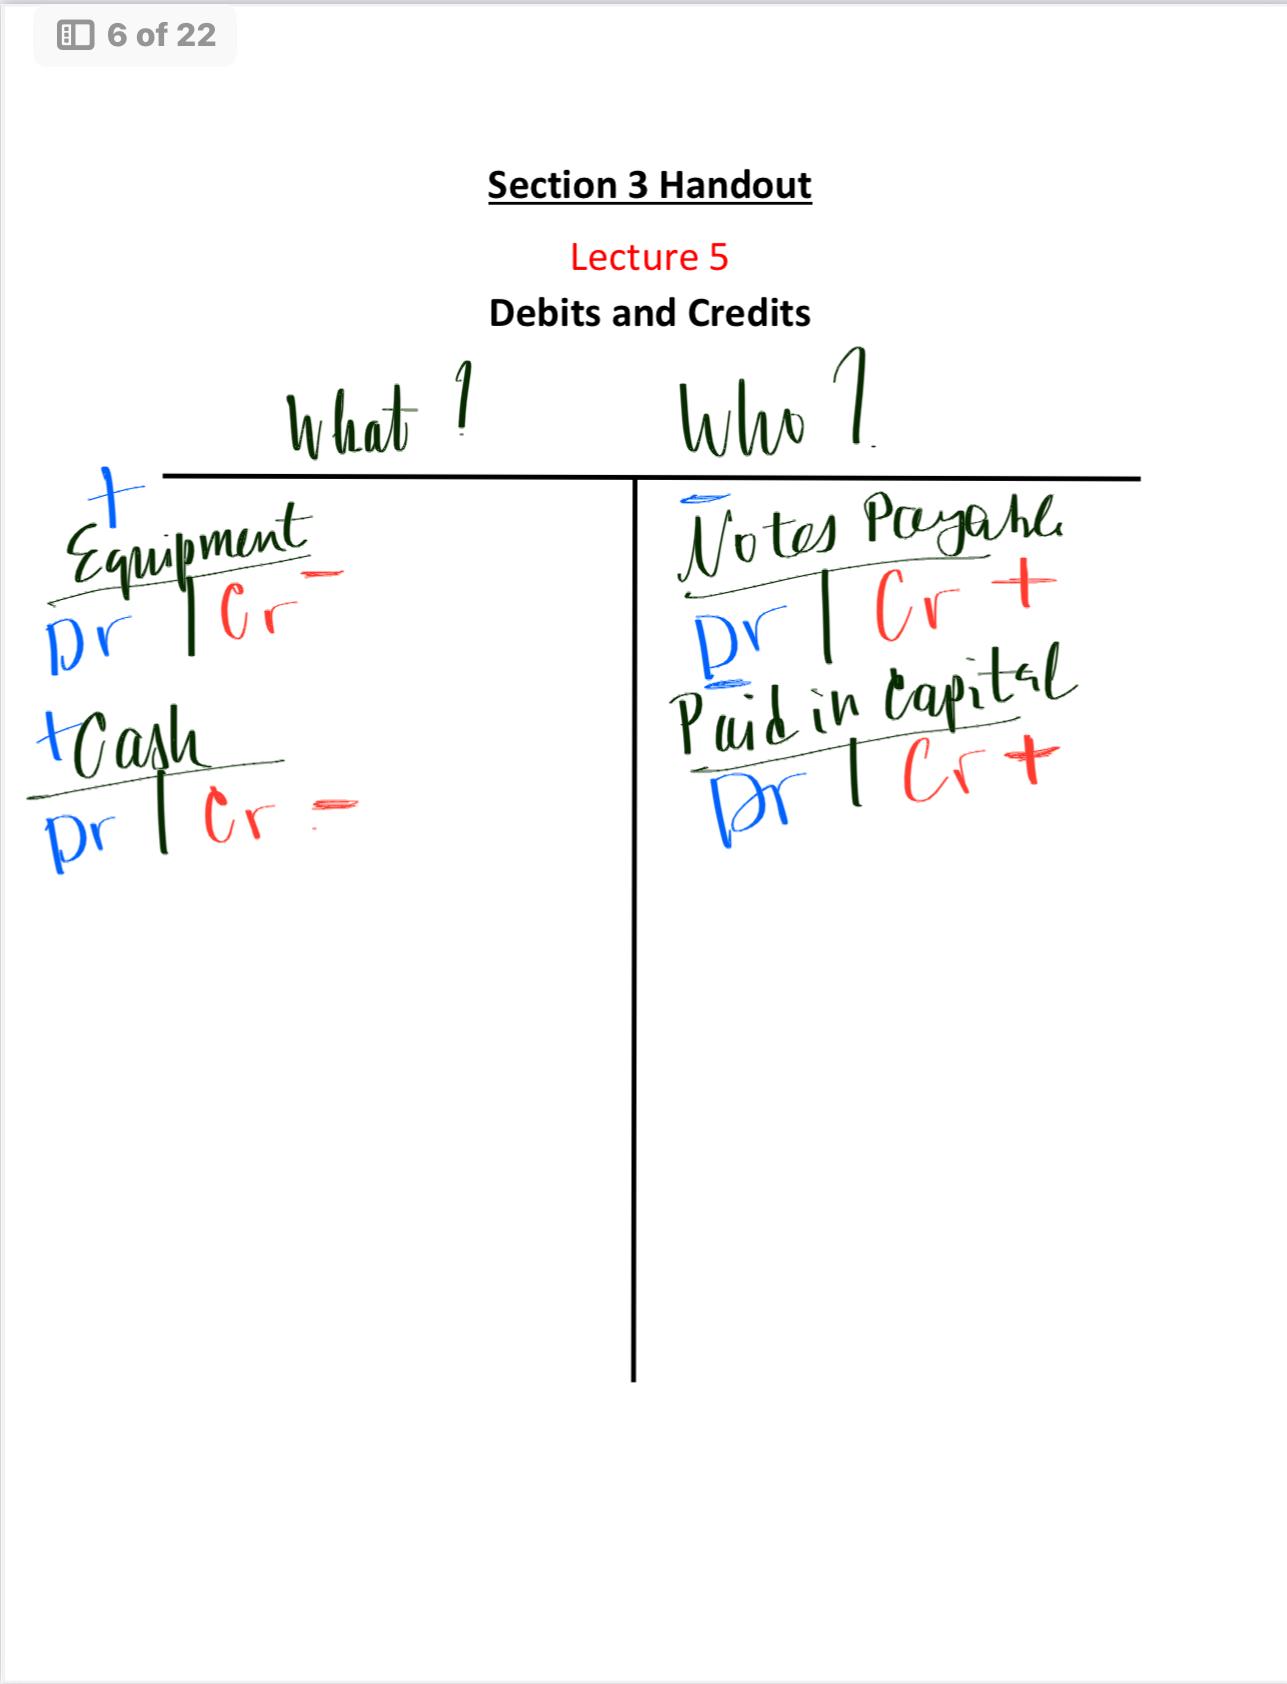 6 of 22
Section 3 Handout
Lecture 5
Debits and Credits
What ?
Who ?
+
Equipment
Dr | Cr -
+ Cash
Dr | Cr -
-
Notes Payable
Dr | Cr +
-
Paid in Capital
Dr | Cr +